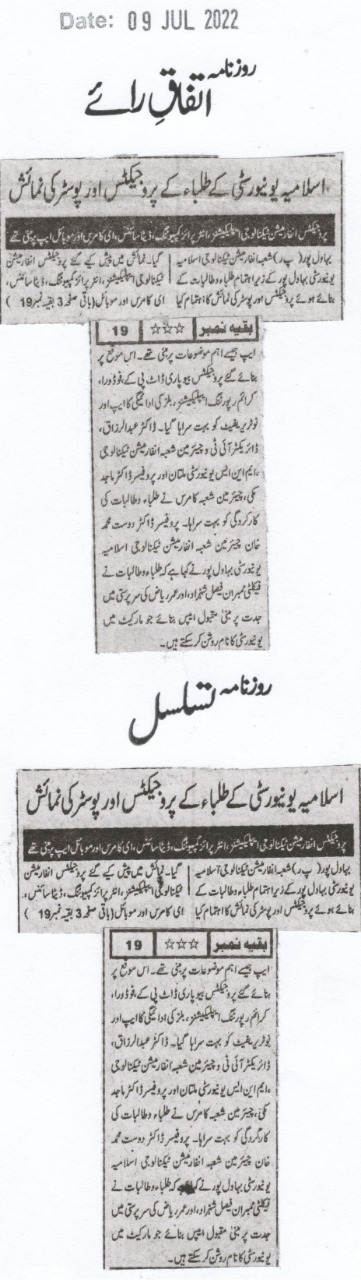 Date: 09 JUL 2022
روزنامہ
اتفاقِ رائے
اسلامیہ یونیورسٹی کے طلباء کے پروجیکٹس اور پوسٹر کی نمائش
پروجیکٹس انفارمیشن ٹیکنالوجی ایپلیکیشنز، انٹرپرائز کمپیوٹنگ، ڈیٹا سائنس، ای کامرس اور موبائل ایپ پر مبنی تھے
بہاول پور (پ ر) شعبہ انفارمیشن ٹیکنالوجی اسلامیہ
یونیورسٹی بہاول پور کے زیر اہتمام طلباء و طالبات کے
بنائے ہوئے پروجیکٹس اور پوسٹر کی نمائش کا اہتمام کیا
گیا۔ نمائش میں پیش کیے گئے پروجیکٹس انفارمیشن
ٹیکنالوجی ایپلیکیشنز، انٹرپرائز کمپیوٹنگ، ڈیٹا سائنس،
ای کامرس اور موبائل (باقی صفحہ 3 بقیہ نمبر 19)
بقیہ نمبر ☆☆☆ 19
ایپ جیسے اہم موضوعات پر مبنی تھے۔ اس موقع پر
بنائے گئے پروجیکٹس بیوپاری ڈاٹ پی کے، فوڈورا،
کرائم رپورٹنگ ایپلیکیشنز، بلز کی ادائیگی کا ایپ اور
نو ٹریفک کو بہت سراہا گیا۔ ڈاکٹر عبدالرزاق،
ڈائریکٹر آئی ٹی و چیئرمین شعبہ انفارمیشن ٹیکنالوجی
، ایم این ایس یونیورسٹی ملتان اور پروفیسر ڈاکٹر ماجد
علی، چیئرمین شعبہ کامرس نے طلباء و طالبات کی
کارکردگی کو بہت سراہا۔ پروفیسر ڈاکٹر دوست محمد
خان چیئرمین شعبہ انفارمیشن ٹیکنالوجی اسلامیہ
یونیورسٹی بہاول پور نے کہا ہے کہ طلباء و طالبات نے
فیکلٹی ممبران فیصل شہزاد، اور عمر ریاض کی سرپرستی میں
جدت پر مبنی مقبول ایپس بنائے جو مارکیٹ میں
یونیورسٹی کا نام روشن کر سکتے ہیں۔
روزنامہ
تسلسل
اسلامیہ یونیورسٹی کے طلباء کے پروجیکٹس اور پوسٹر کی نمائش
پروجیکٹس انفارمیشن ٹیکنالوجی ایپلیکیشنز، انٹرپرائز کمپیوٹنگ، ڈیٹا سائنس، ای کامرس اور موبائل ایپ پر مبنی تھے
بہاول پور (پ ر) شعبہ انفارمیشن ٹیکنالوجی اسلامیہ
یونیورسٹی بہاول پور کے زیر اہتمام طلباء و طالبات کے
بنائے ہوئے پروجیکٹس اور پوسٹر کی نمائش کا اہتمام کیا
گیا۔ نمائش میں پیش کیے گئے پروجیکٹس انفارمیشن
ٹیکنالوجی ایپلیکیشنز، انٹرپرائز کمپیوٹنگ، ڈیٹا سائنس،
ای کامرس اور موبائل (باقی صفحہ 3 بقیہ نمبر 19)
بقیہ نمبر ☆☆☆ 19
ایپ جیسے اہم موضوعات پر مبنی تھے۔ اس موقع پر
بنائے گئے پروجیکٹس بیوپاری ڈاٹ پی کے، فوڈورا،
کرائم رپورٹنگ ایپلیکیشنز، بلز کی ادائیگی کا ایپ اور
نو ٹریفک کو بہت سراہا گیا۔ ڈاکٹر عبدالرزاق،
ڈائریکٹر آئی ٹی و چیئرمین شعبہ انفارمیشن ٹیکنالوجی
، ایم این ایس یونیورسٹی ملتان اور پروفیسر ڈاکٹر ماجد
علی، چیئرمین شعبہ کامرس نے طلباء و طالبات کی
کارکردگی کو بہت سراہا۔ پروفیسر ڈاکٹر دوست محمد
خان چیئرمین شعبہ انفارمیشن ٹیکنالوجی اسلامیہ
یونیورسٹی بہاول پور نے کہ طلباء و طالبات نے
فیکلٹی ممبران فیصل شہزاد، اور عمر ریاض کی سرپرستی میں
جدت پر مبنی مقبول ایپس بنائے جو مارکیٹ میں
یونیورسٹی کا نام روشن کر سکتے ہیں۔